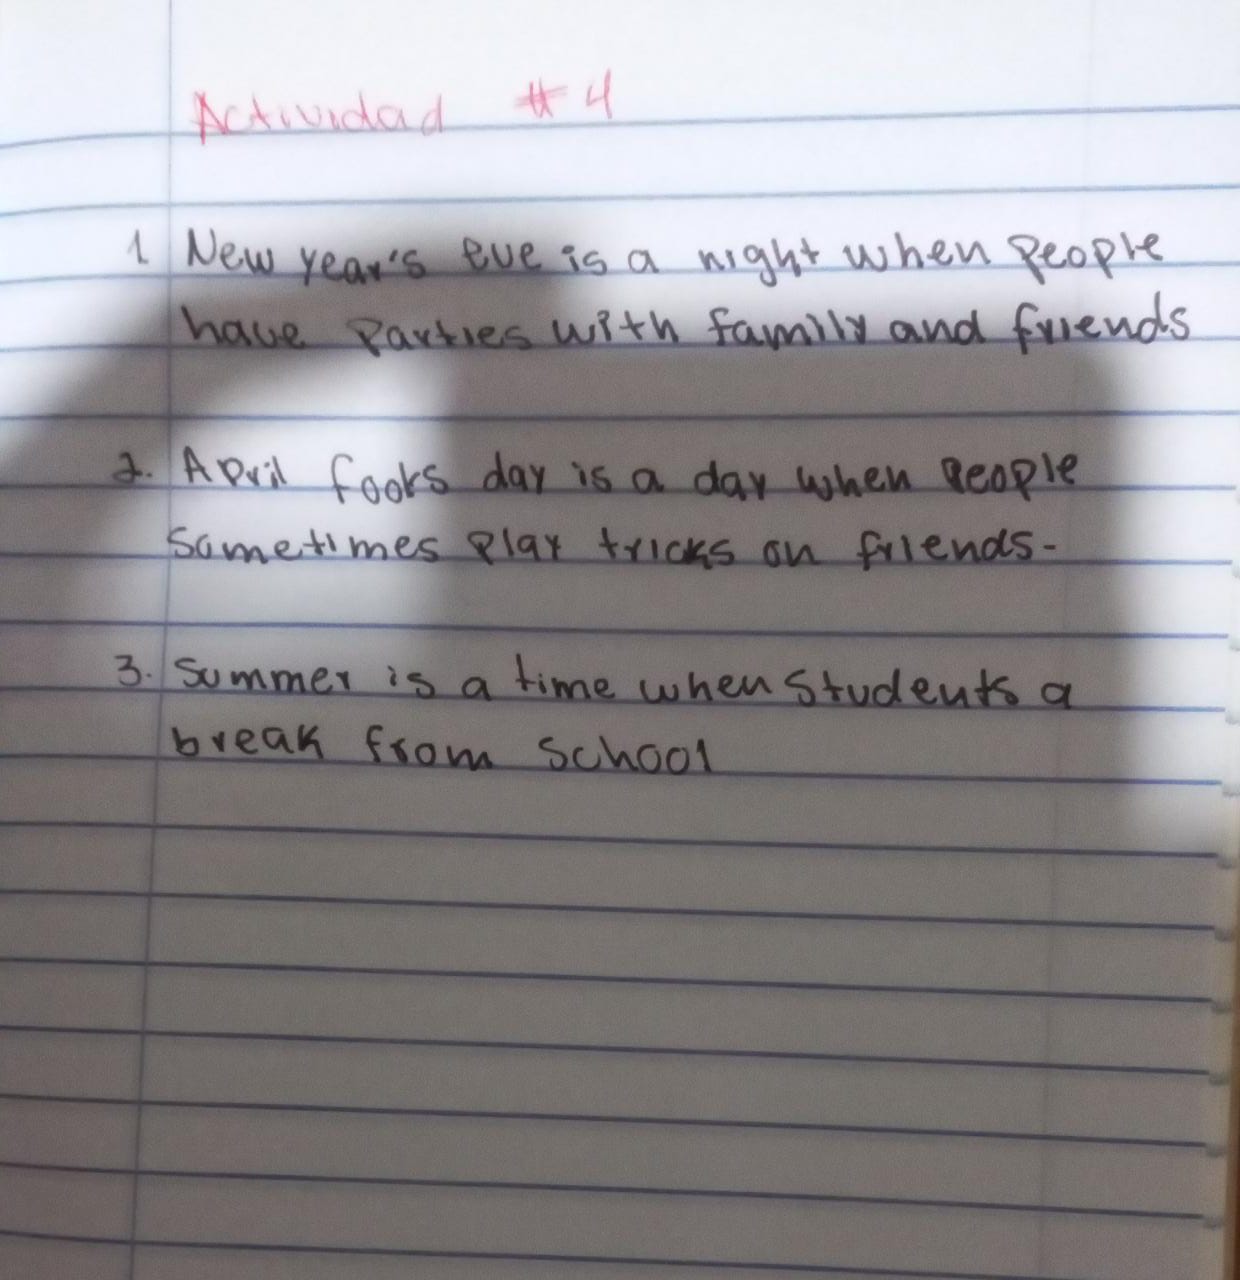 Actividad #4
1 New year's eve is a night when people
have parties with family and friends
2. April fools day is a day when people
sometimes play tricks on friends.
3. summer is a time when students a
break from school